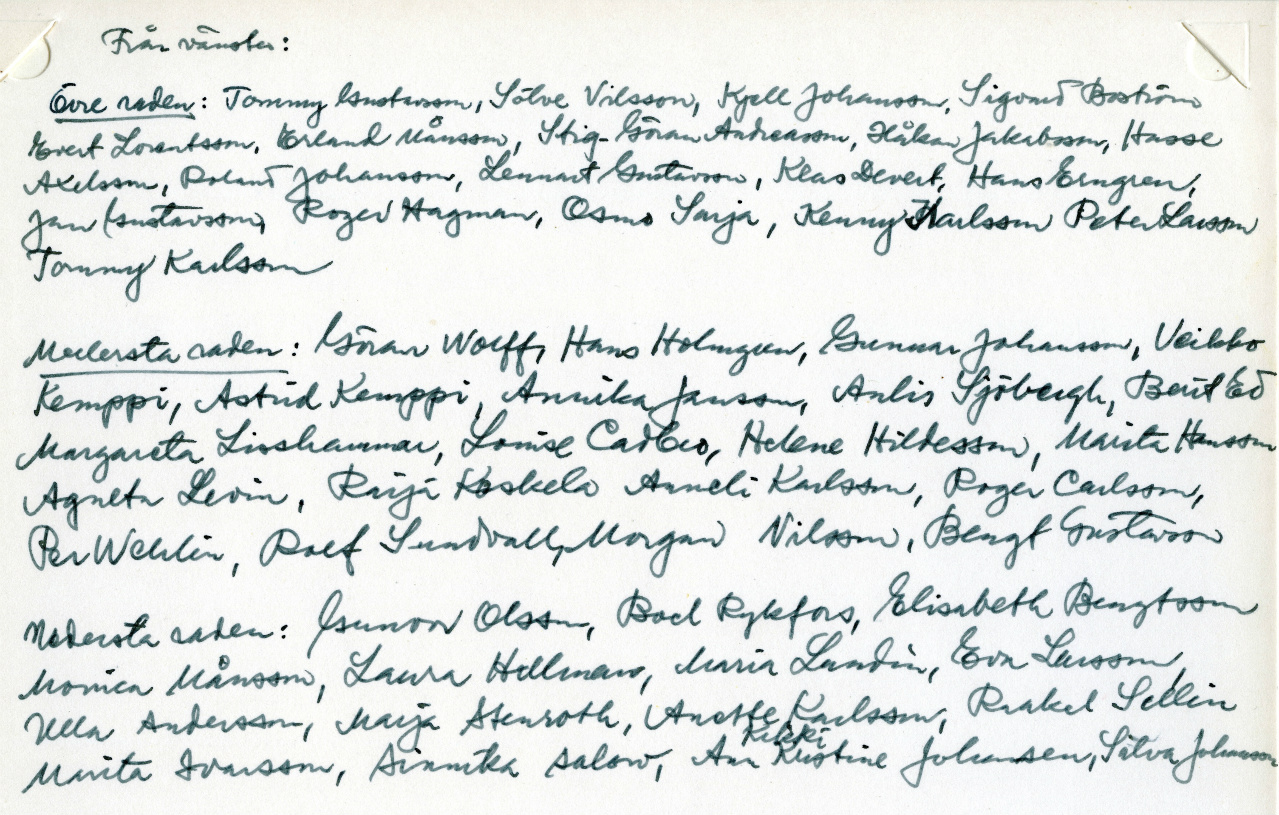 Från vänster:
Övre raden: Tommy Gustavsson, Sölve Nilsson, Kjell Johansson, Sigvard Boström
Evert Lorentsson, Erland Månsson, Stig-Göran Andreasson, Håkan Jakobsson, Hasse
Axelsson, Roland Johansson, Lennart Gustavsson, Klas Devert, Hans Erngren,
Jan Gustavsson, Roger Hagman, Osmo Sarja, Kenny Karlsson Peter Larsson
Tommy Karlsson
Mellersta raden: Göran Wolff, Hans Holmgren, Gunnar Johansson, Veikko
Kemppi, Astrid Kemppi, Annika Jansson, Anlis Sjöbergh, Berit Ed
Margareta Linshammar, Louise Helene Hildesson, Marita Hansson
Agneta Levin, Raija Koskela Anneli Karlsson, Roger Carlsson,
Per Wehlin, Rolf Sundvall, Morgan Nilsson, Bengt Gustavsson
Nedersta raden: Gunvor Olsson, Bodil Rykfors, Elisabeth Bengtsson
Monica Månsson, Laura Hellman, Maria Lundin, Eva Larsson,
Ulla Andersson, Maija Stenroth, Anette Karlsson, Raakel Sellin
Kikki
Marita Ivarsson, Sinikka Salow, Ann Kristine Johansen, Sölva Johansson